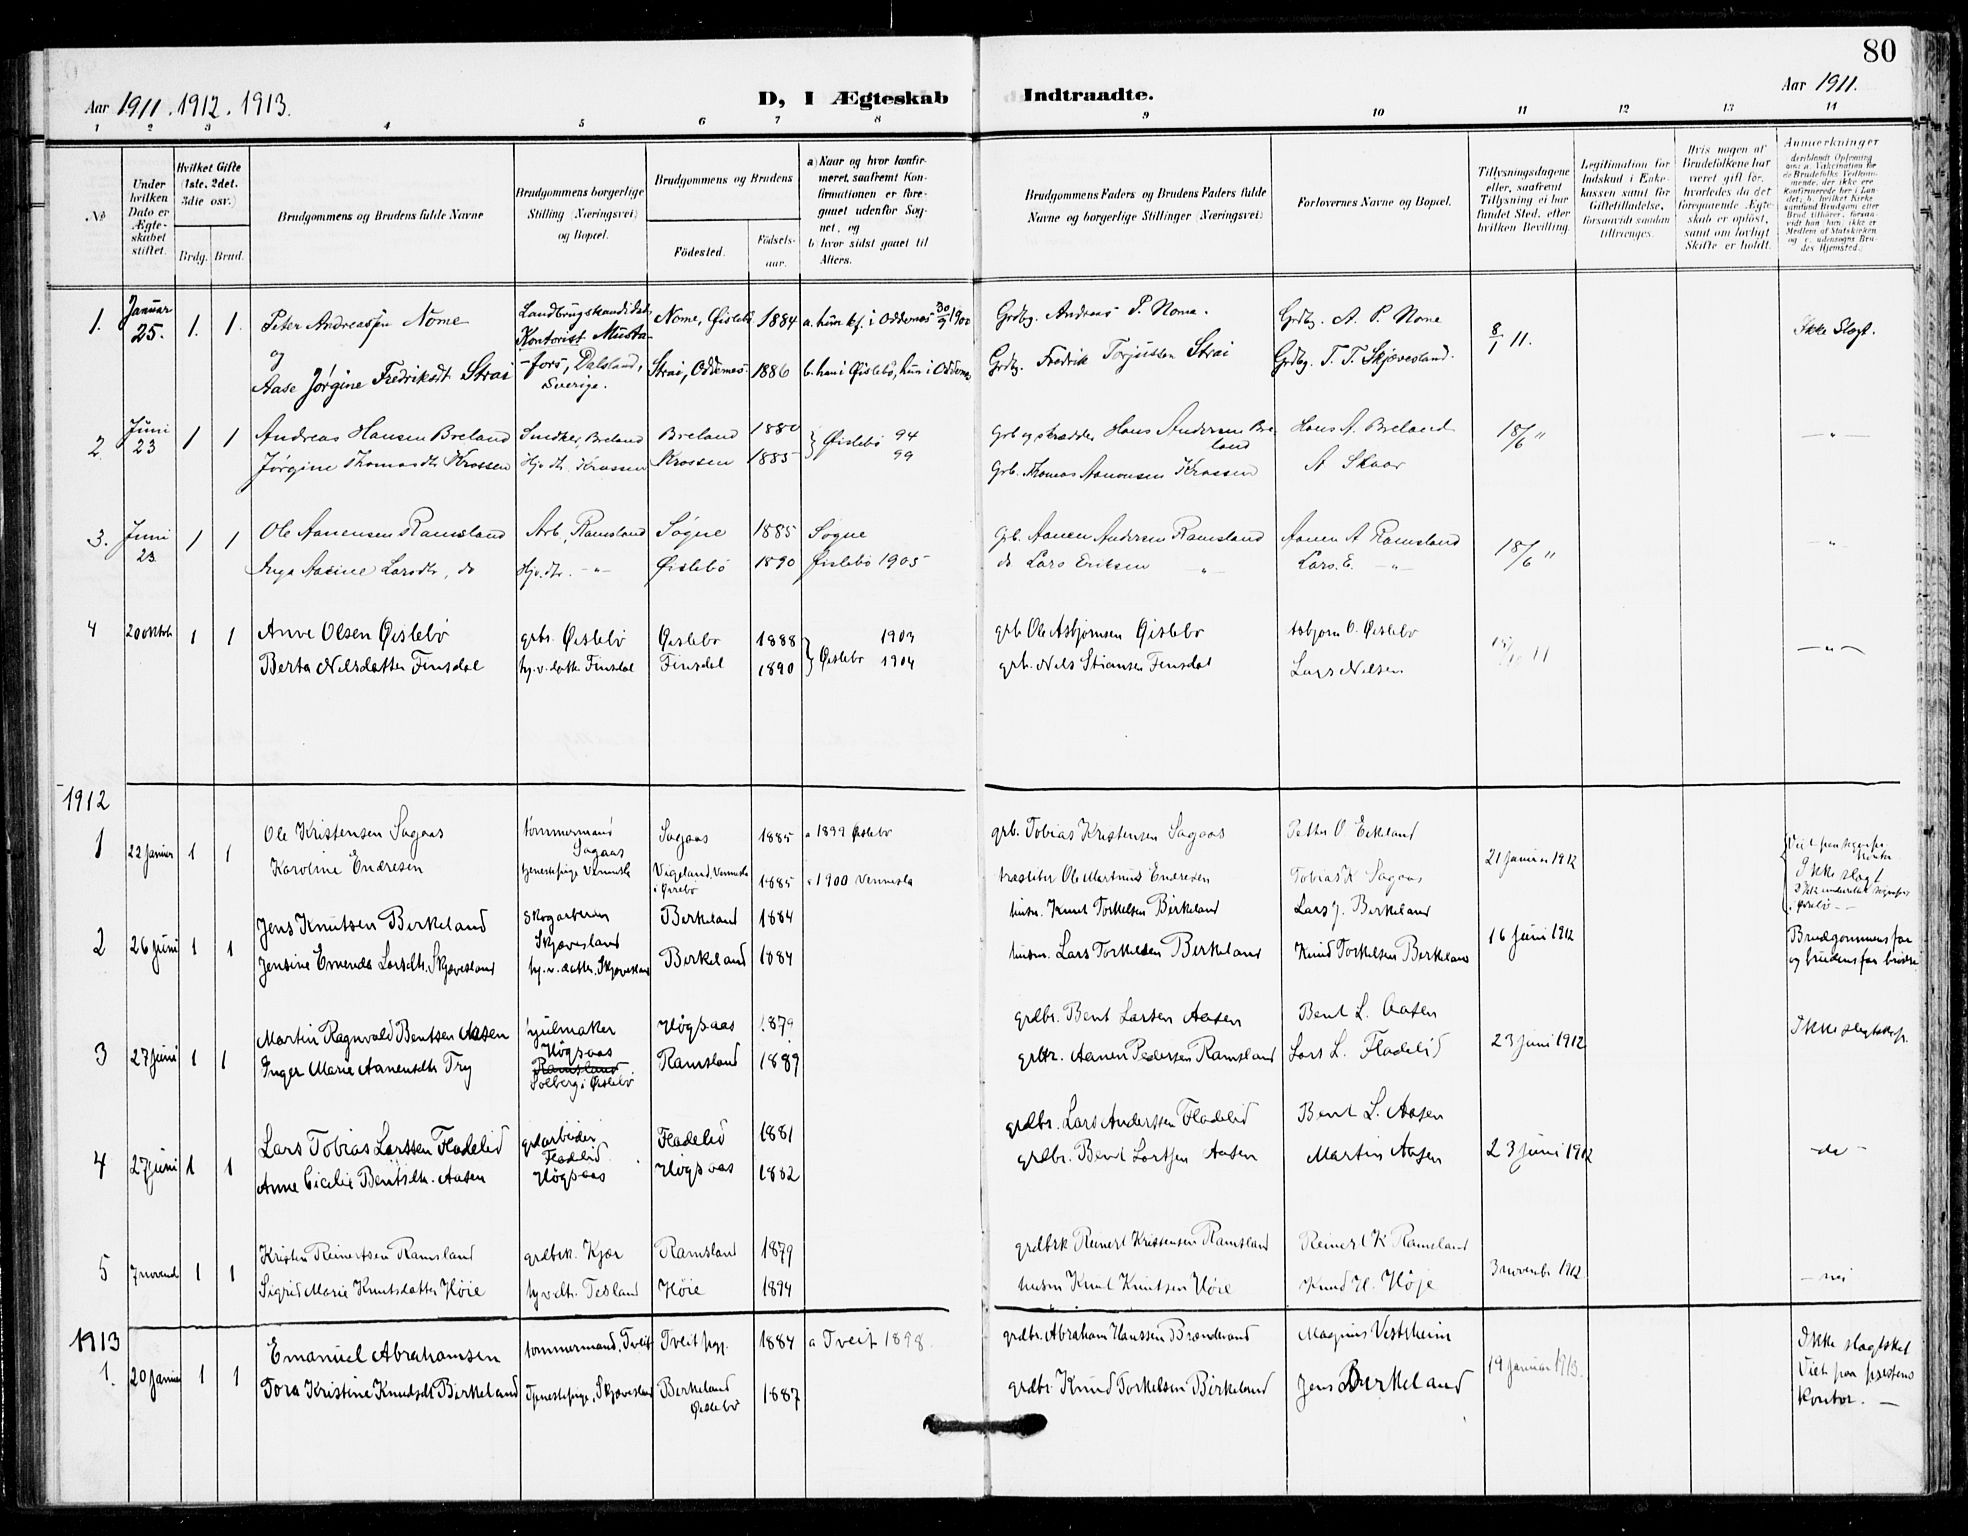 80
Aar 1911. 1912. 1913.
D, I Ægteskab Indtraadte.
Aar 1911.
1 2 3 4 5 6 7 8 9 10 11 12 13 14
No
Under hvilken Dato er Ægteskabet stiftet.
Hvilket Gifte (1ste, 2det. 3die osv.)
Brdg. Brud.
Brudgommens og Brudens fulde Navne
Brudgommens borgerlige Stilling (Næringsvei) og Bopæl.
Brudgommens og Brudens
Födested. Födsels-aar.
a) Naar og hvor konfirmeret, saafremt Konfirmationen er foregaaet udenfor Sognet, og
b) hvor sidst gaaet til Alters.
Brudgommens Faders og Brudens Faders fulde Navne og borgerlige Stillinger (Næringsvei)
Forlovernes Navne og Bopæl.
Tillysningsdagene eller, saafremt Tillysning ei har fundet Sted, efter hvilken Bevilling.
Legitimation for Indskud i Enkekassen samt for Giftetilladelse, forsaavidt saadan tiltrænges.
Hvis nogen af Brudefolkene har været gift før, hvorledes da det foregaaende Ægteskab er opløst, samt om lovligt Skifte er holdt.
Anmerkninger
1. Januar 25. 1. 1. Peter Andreassen Nome Landbrugskandidat, Kontorist Mustafors, Dalsland, Sverige. Nome, Øislebø 1884 a. hun kf. i Oddernes 30/9 1900 Grdbg. Andreas P. Nome. Grdbg. A. P. Nome 8/1 11. Ikke Slegt.
og
Aase Jørgine Fredriksdt. Strai Strai, Oddernes 1886 b. han i Øislebø, hun i Oddernes Grdbg. Fredrik Torjussen Strai Grdbg. T. T. Skjævesland.
2 Juni 23 1 1 Andreas Hansen Breland Snedker, Breland Breland 1880 Øislebø 94 Grb og skrædder Hans Andersen Breland Hans A. Breland 18/6 " — " —
Jørgine Thomasdt Krossen Hjv. dt. Krossen Krossen 1885 99 Grb. Thomas Aanonsen Krossen A Skaar
3. Juni 23 1 1 Ole Aanensen Ramsland Arb, Ramsland Søgne 1885 Søgne Grb. Aanen Andersen Ramsland Aanen A Ramsland 18/6 " — " —
Inga Aasine Larsdt, do Hjv. dt. — " — Øislebø 1890 Øislebø 1905 do Lars Eriksen — " — Lars. E. — " —
4 20 oktob 1 1 Anve Olsen Øislebö grbr. Øislebö Øislebö 1888 Øislebö 1903 grb Ole Asbjørnsen Øislebö Asbjørn O. Øislebö 11 — " —
Berta Nilsdatter Finsdal hj. v. datter Finsdal Finsdal 1890 1904 grb. Nils Stiansen Finsdal Lars Nilsen
1912
1 22 Januar 1 1 Ole Kristensen Sagaas tømmermand Sagaas Sagaas 1885 a 1899 Øislebö grb. Tobias Kristensen Sagaas Petter O. Eikeland 21 januar 1912 Ikke slagt
Karoline Endresen tjenestepige Vennesla Vigeland, Vennesla i Øvrebö 1885 a 1900 Vennesla Ole Martinius Endresen Tobias K Sagaas
2 26 juni 1 1 Jens Knutsen Birkeland Skogarbeider Skjævesland Birkeland 1884 husm. Knut Torkelsen Birkeland Lars J. Birkeland 16 juni 1912 Brudgommens far og brudens far brødre
Jensine Emende Larsdtr. Skjævesland hj. v. datter. Skjævesland Birkeland 1884 husm. Lars Torkelsen Birkeland Knud Torkelsen Birkeland
3 27 juni 1 1 Martin Ragnvald Bentsen Aasen hjulmaker Høgsaas Høgsaas 1879 grdbr. Bent Larsen Aasen Bent L. Aasen 23 juni 1912 Ikke slagtskap.
Inger Marie Aanensdtr Try Ramsland Solberg i Øislebö Ramsland 1889 grdbr. Aanen Pedersen Ramsland Lars L. Fladelid
4 27 juni 1 1 Lars Tobias Larssen Fladelid grdarbeider Fladelid Fladelid 1881 grdbr. Lars Anderssen Fladelid Bent L. Aasen 23 juni 1912 — do —
Anne Cicilie Bentsdtr. Aasen Høgsaas Høgsaas 1882 grdbr. Bent Lartsen Aasen Martin Aasen
5 7 novemb 1 1 Kristen Reinertsen Ramsland grdbrk. Kjær Ramsland 1879 grdbrk Reinert Kristensen Ramsland Reinert K Ramsland 3 novembr 1912 — nei
Sigrid Marie Knutsdatter Höie hjvdtr. Tesland Höie 1894 husm Knut Knutsen Höie Knud H. Höje
1913
1. 20 januar 1 1 Emanuel Abrahamsen tømmermand, Tveit Tveit pgj. 1884 a Tveit 1898. grdbr. Abraham Hanssen Brændmand Magnus Vestshein 19 januar 1913. Ikke slagtskap Viet paa prestens kontor. —
Tora Kristine Knudsdt Birkeland Tjenestepige, Skjævesland Birkeland Øislebö 1887 grdbr. Knud Torkelsen Birkeland Jens Birkeland